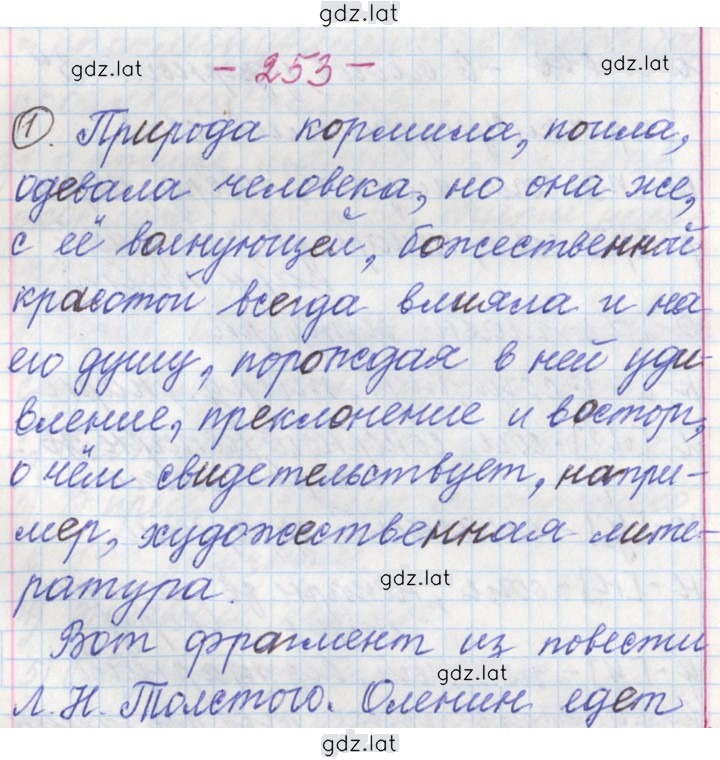 gdz.lat
gdz.lat
- 253 -
gdz.lat
1. Природа кормила, поила,
одевала человека, но она же,
с её волнующей, божественной
красотой всегда влияла и на
его душу, порождая в ней уди-
вление, преклонение и восторг,
о чём свидетельствует, напри-
мер, художественная лите-
ратура.
gdz.lat
Вот фрагмент из повести
gdz.lat
Л. Н. Толстого. Оленин едет
gdz.lat